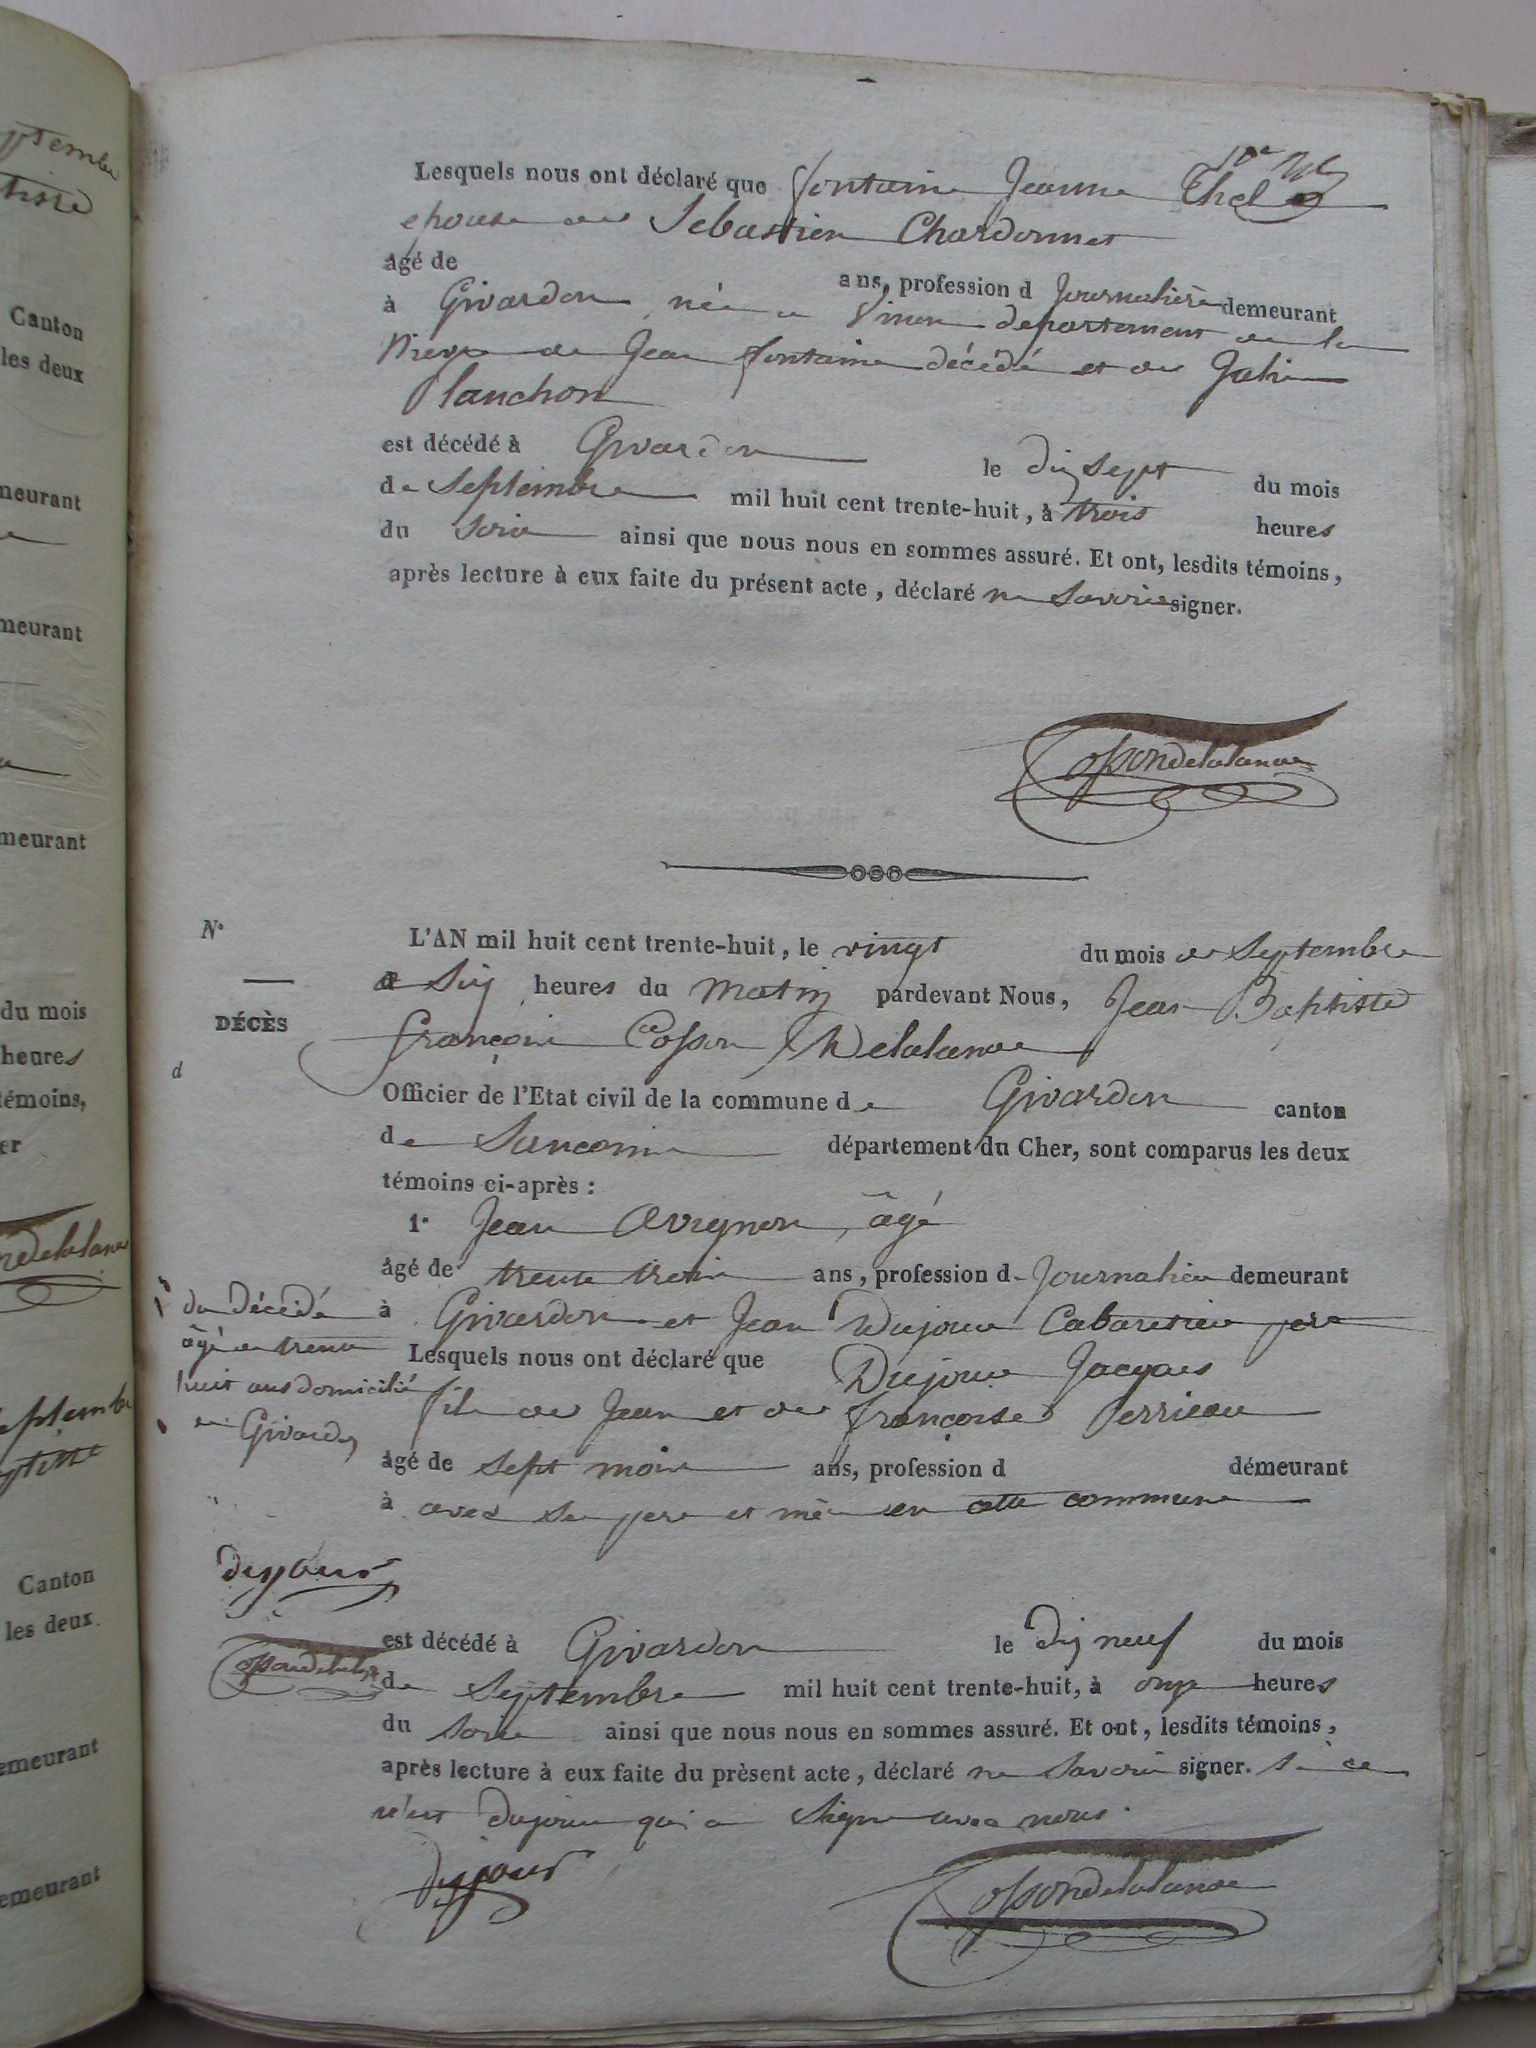 Lesquels nous ont déclaré que fontaine Jeanne
epouse de Sebastien Chardonnet
âgé de ans, profession d Journalière demeurant
à Givardon née a département de la
Nievre de Jean fontaine décédé et de Julie
Planchon
est décédé à Givardon le dix sept du mois
de Septembre mil huit cent trente-huit, à trois heures
du soir ainsi que nous nous en sommes assuré. Et ont, lesdits témoins,
après lecture à eux faite du présent acte, déclaré ne savoir signer.
Cossondelalande
N° L'AN mil huit cent trente-huit, le vingt du mois de Septembre
à Six heures du matin pardevant Nous, Jean Baptiste
DÉCÈS
françois Cosson Delalande
d
Officier de l'Etat civil de la commune de Givardon canton
de Sancoins département du Cher, sont comparus les deux
témoins ci-après :
1° Jean Avignon, âgé
âgé de trente trois ans, profession de Journalier demeurant
à Givardon et Jean Dujour Cabaretier pere
du décédé
âgé de trente
huit ans domicilié
en Givardon
Lesquels nous ont déclaré que Dujour Jacques
fils de Jean et de françoise Perrieau
âgé de sept mois ans, profession d démeurant
à avec se pere et mère en cette commune
dujour
Cossondelalande
est décédé à Givardon le dix neuf du mois
de Septembre mil huit cent trente-huit, à onze heures
du soir ainsi que nous nous en sommes assuré. Et ont, lesdits témoins,
après lecture à eux faite du prèsent acte, déclaré ne savoir signer. si ce
n'est dujour qui a signé avec nous.
dujour
Cossondelalande